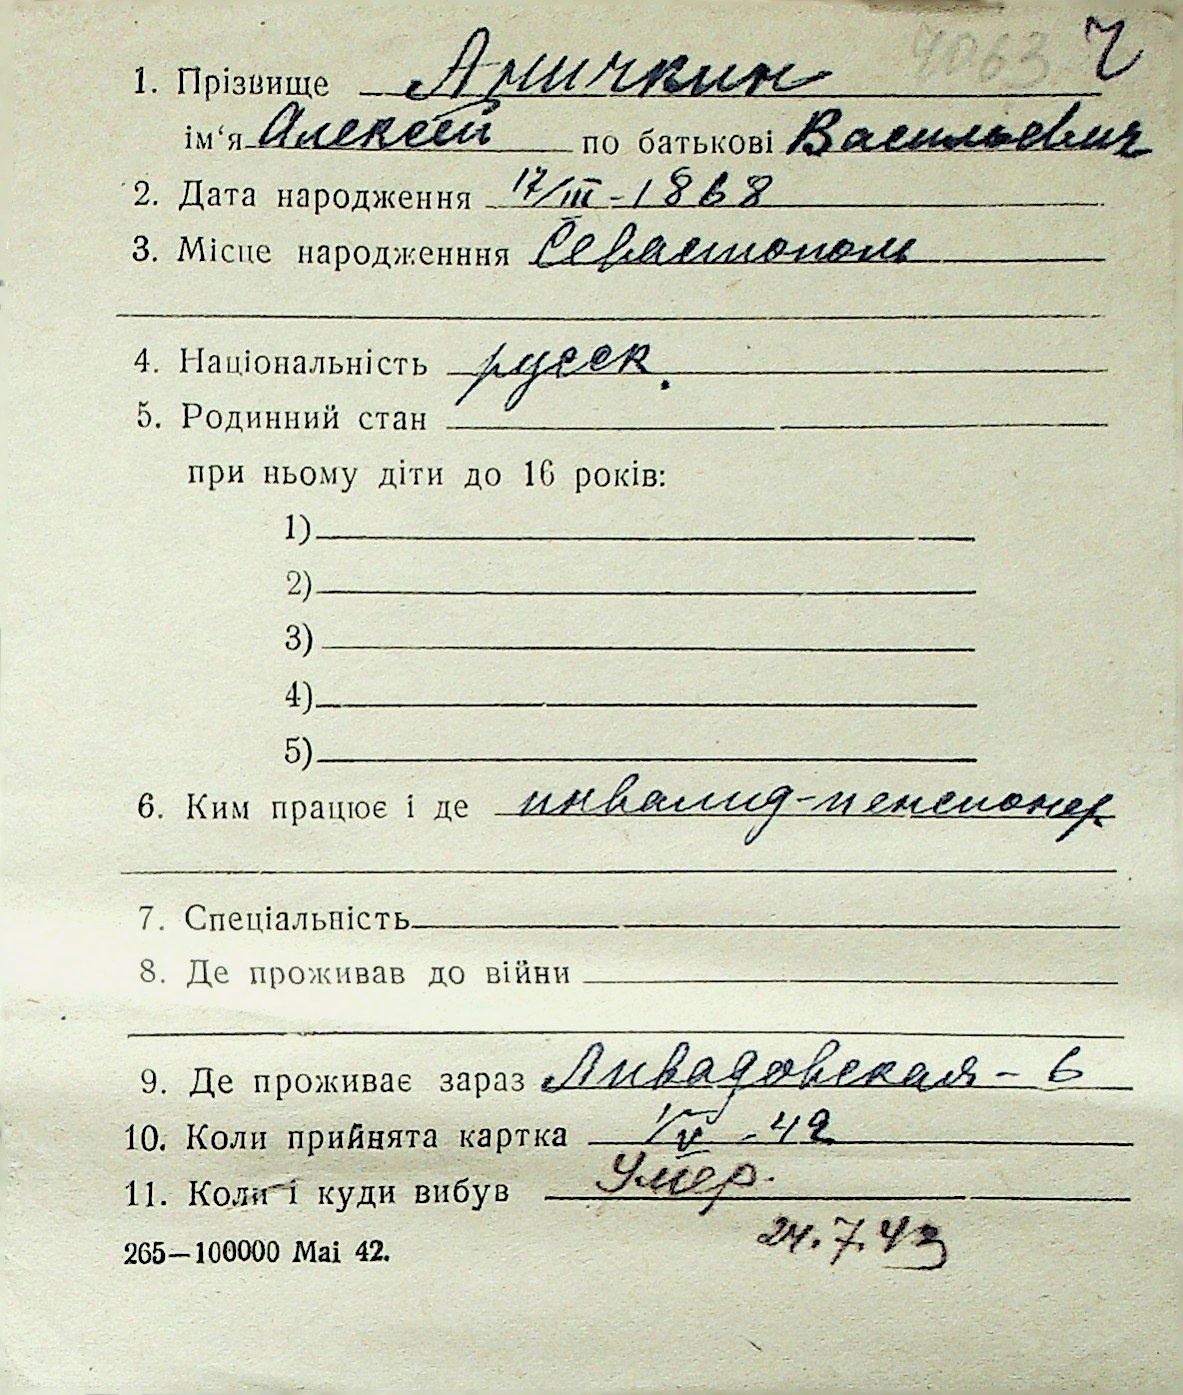 4063 Ч
1. Прізвище Аничкин
ім‘я Алексей по батькові Васильевич
2. Дата народження 17/III - 1868
3. Місце народженння Севастополь
4. Національність русск.
5. Родинний стан
при ньому діти до 16 років:
1)
2)
3)
4)
5)
6. Ким працює і де инвалид-пенсионер
7. Спеціальність
8. Де проживав до війни
9. Де проживає зараз Ливадовская - 6
10. Коли прийнята картка 1/V - 42
11. Коли і куди вибув Умер.
24.7.43
265—100000 Mai 42.